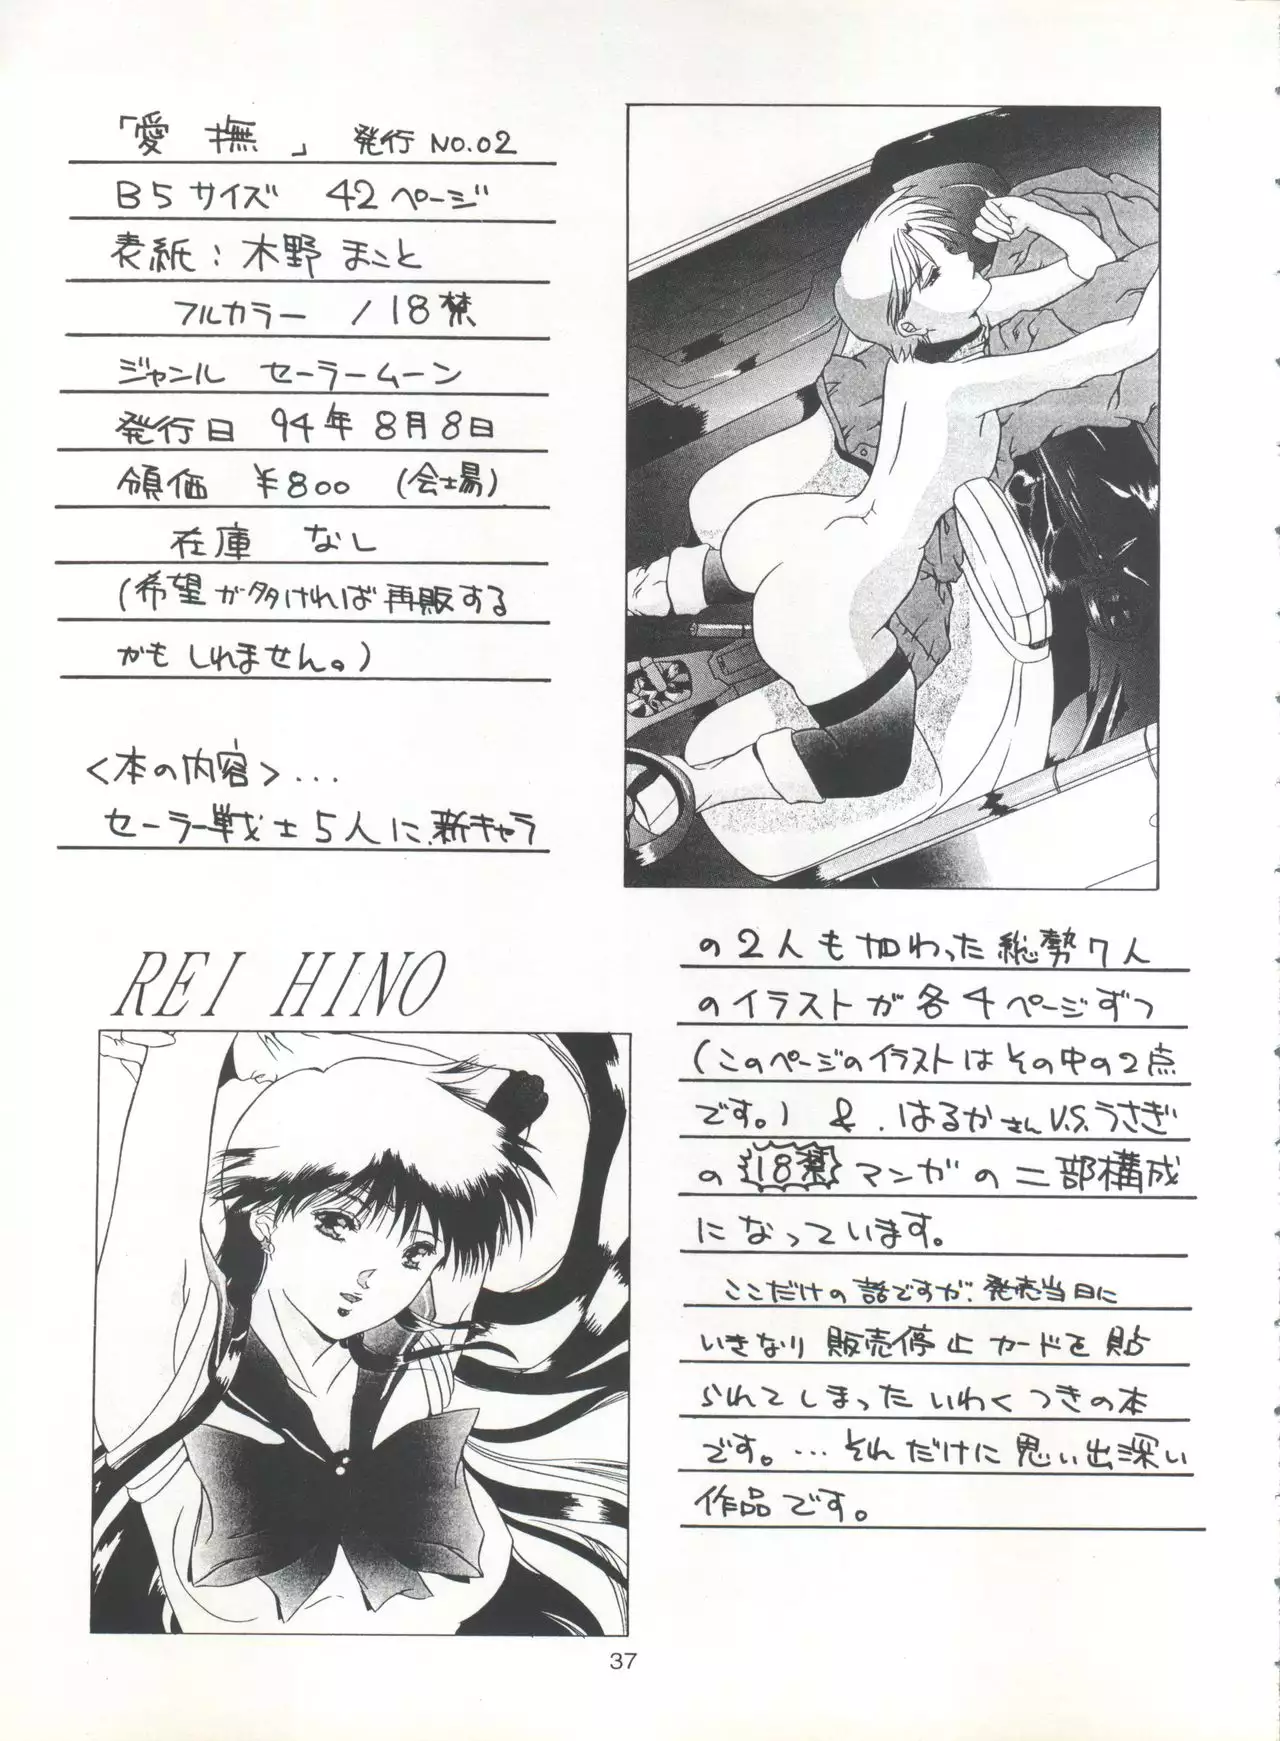 「愛撫」 発行 NO.02
B5サイズ 42ページ
表紙:木野まこと
フルカラー /18禁
ジャンル セーラームーン
発行日 94年8月8日
領価 ¥800 (会場)
在庫 なし
(希望が多ければ再販する
かもしれません。)
<本の内容>...
セーラー戦士5人に、新キャラ
の2人も加わった総勢7人
のイラストが各4ページずつ
(このページのイラストはその中の2点
です。) &、はるかさんV.S.うさぎ
の18禁マンガの二部構成
になっています。
ここだけの話ですが、発売当日に
いきなり販売停止カードを貼
られてしまったいわくつきの本
です。…それだけに思い出深い
作品です。
REI HINO
37